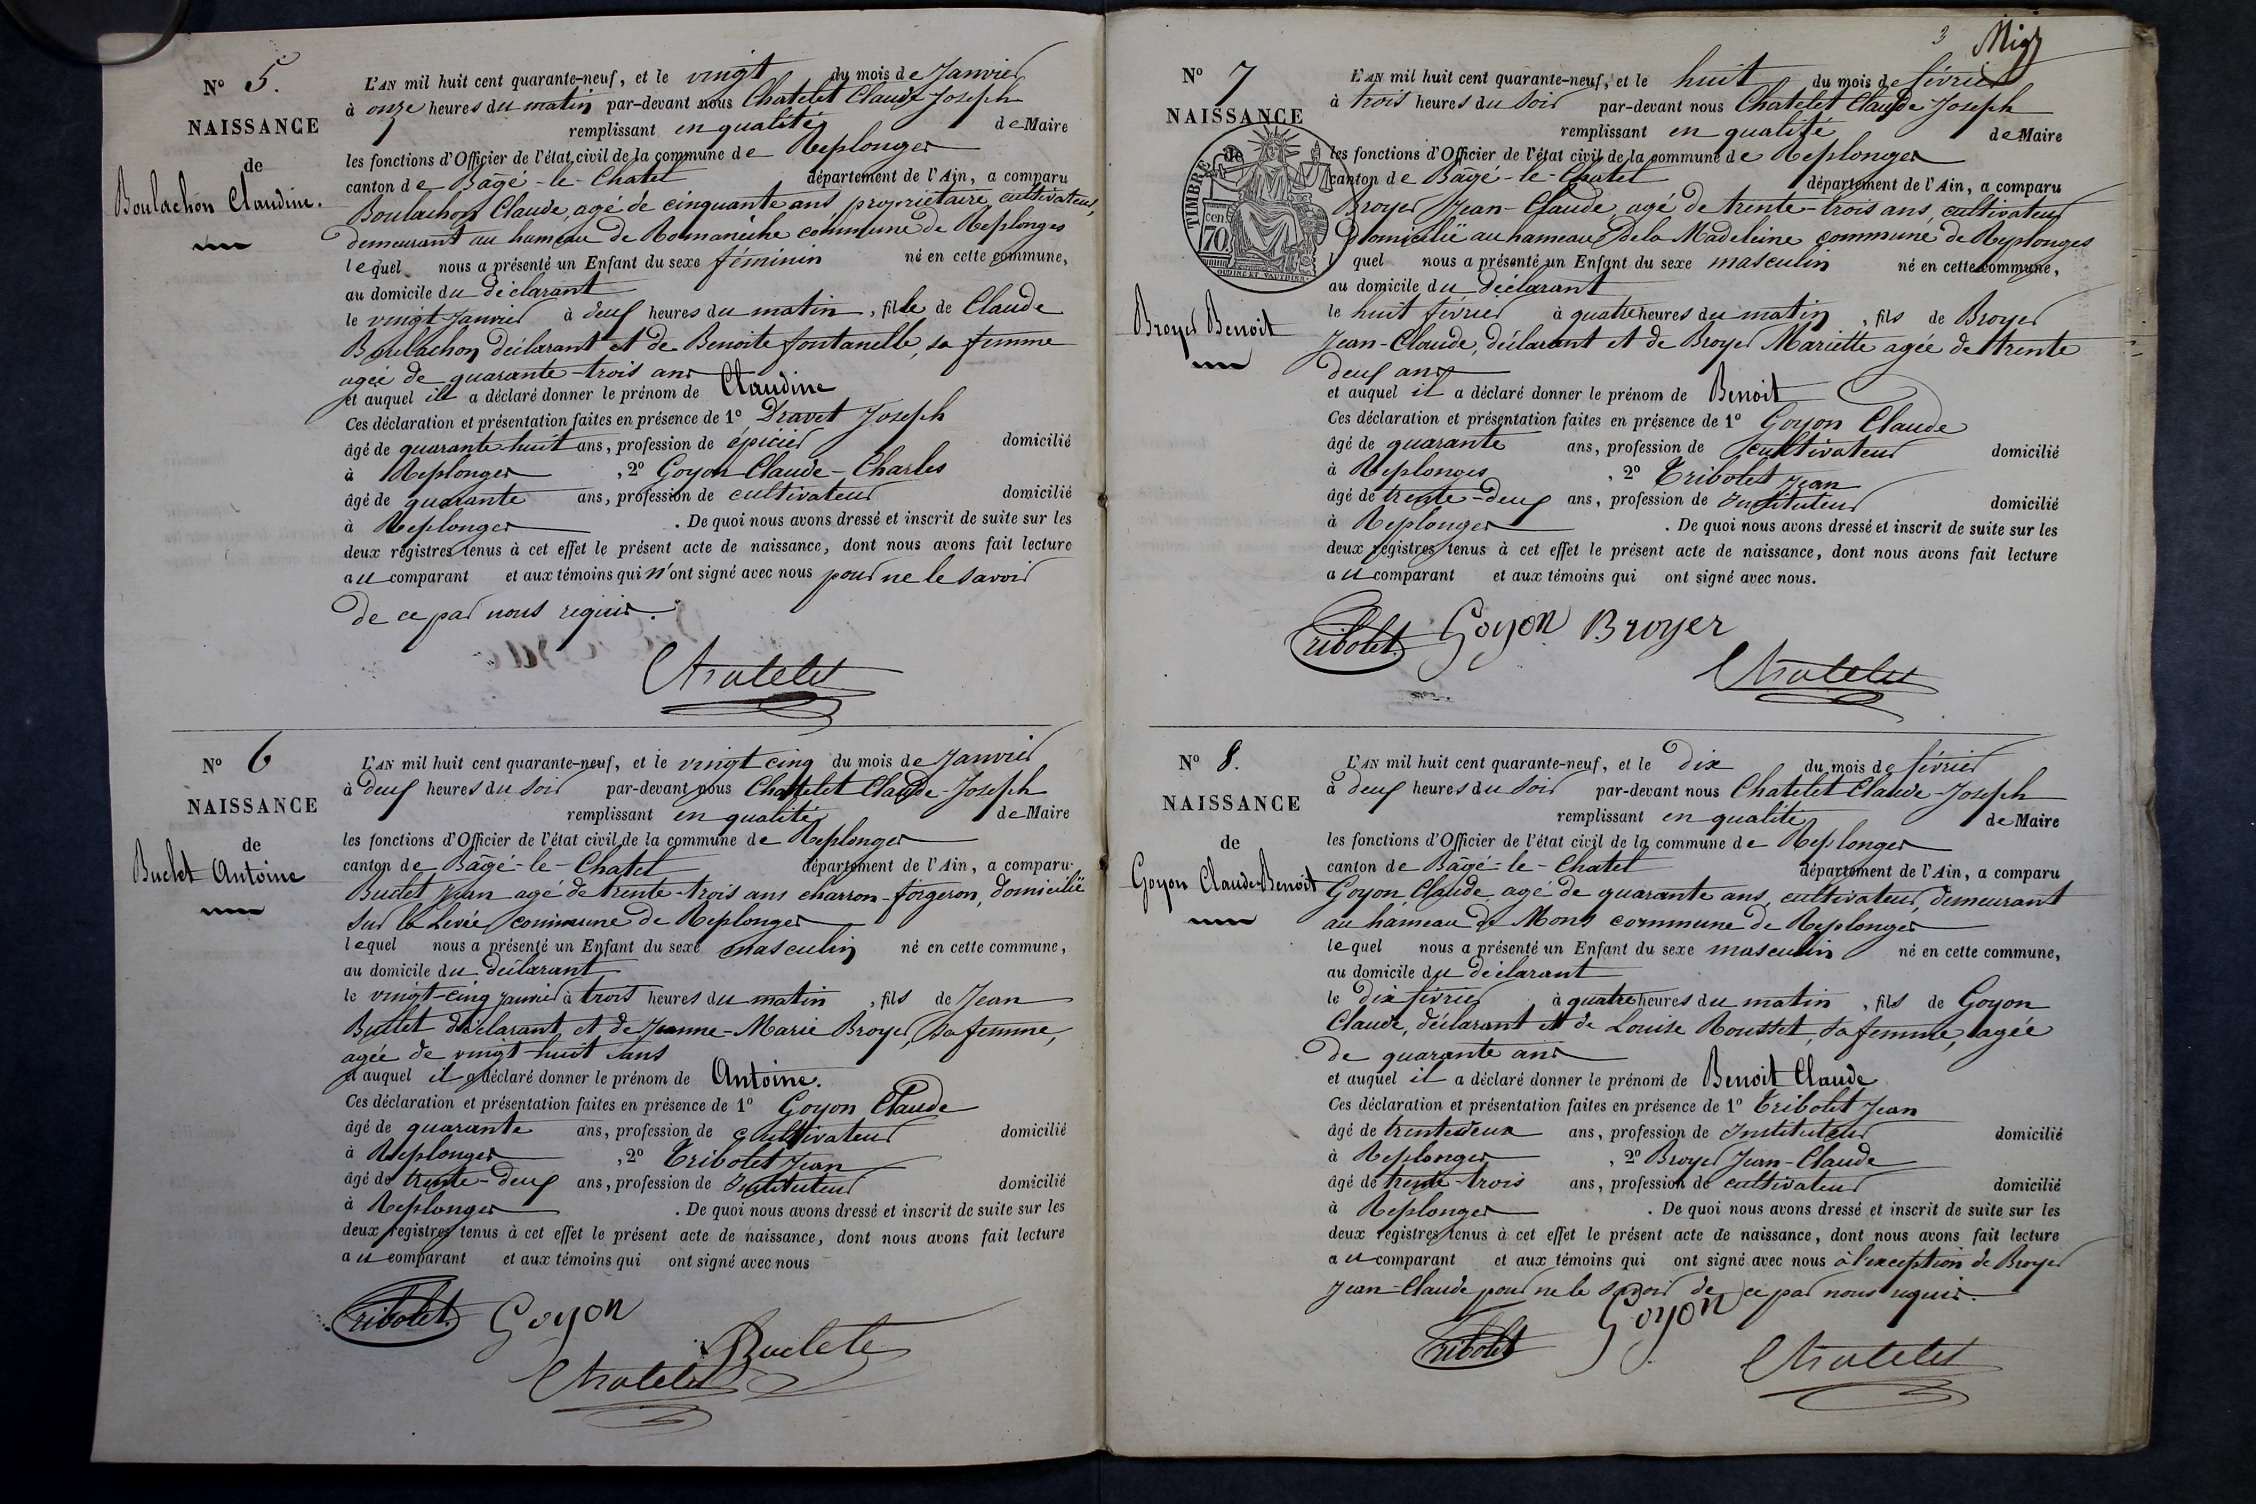 N° 5.
NAISSANCE
de
Boulachon Claudine.
L'AN mil huit cent quarante-neuf, et le vingt du mois de Janvier
à onze heures du matin par-devant nous Chatelet Claude-Joseph
remplissant en qualité de Maire
les fonctions d'Officier de l'état civil de la commune de Replonges
canton de Bâgé-le-Chatel département de l'Ain, a comparu
Boulachon Claude, agé de cinquante ans propriétaire cultivateur,
demeurant au hameau de Romanèche commune de Replonges
lequel nous a présenté un Enfant du sexe féminin né en cette commune,
au domicile du déclarant
le vingt Janvier à deux heures du matin, fille de Claude
Boulachon déclarant et de Benoite fontanelle, sa femme
agée de quarante-trois ans
et auquel il a déclaré donner le prénom de Claudine
Ces déclaration et présentation faites en présence de 1° Dravet Joseph
âgé de quarante-huit ans, profession de épicier domicilié
à Replonges, 2° Goyon Claude-Charles
âgé de quarante ans, profession de cultivateur domicilié
à Replonges. De quoi nous avons dressé et inscrit de suite sur les
deux registres tenus à cet effet le présent acte de naissance, dont nous avons fait lecture
au comparant et aux témoins qui n'ont signé avec nous pour ne le savoir
de ce par nous requis.
Chatelet
N° 6
NAISSANCE
de
Buclet Antoine
L'AN mil huit cent quarante-neuf, et le vingt cinq du mois de Janvier
à deux heures du soir par-devant nous Chatelet Claude-Joseph
remplissant en qualité de Maire
les fonctions d'Officier de l'état civil de la commune de Replonges
canton de Bâgé-le-Chatel département de l'Ain, a comparu
Buclet Jean agé de trente-trois ans charron-forgeron, domicilié
sur la Levée commune de Replonges
lequel nous a présenté un Enfant du sexe masculin né en cette commune,
au domicile du déclarant
le vingt-cinq janvier à trois heures du matin, fils de Jean
Buclet déclarant et de Jeanne-Marie Broyer, sa femme,
agée de vingt-huit ans
et auquel il a déclaré donner le prénom de Antoine.
Ces déclaration et présentation faites en présence de 1° Goyon Claude
âgé de quarante ans, profession de cultivateur domicilié
à Replonges, 2° Tribolet Jean
âgé de trente-deux ans, profession de Instituteur domicilié
à Replonges. De quoi nous avons dressé et inscrit de suite sur les
deux registres tenus à cet effet le présent acte de naissance, dont nous avons fait lecture
au comparant et aux témoins qui ont signé avec nous
Tribolet. Goyon
Buclet
Chatelet
3
N° 7
NAISSANCE
de
TIMBRE
cen
70
Broyer Benoit
L'AN mil huit cent quarante-neuf, et le huit du mois de février
à trois heures du soir par-devant nous Chatelet Claude-Joseph
remplissant en qualité de Maire
les fonctions d'Officier de l'état civil de la commune de Replonges
canton de Bâgé-le-Chatel département de l'Ain, a comparu
Broyer Jean-Claude, agé de trente-trois ans, cultivateur
domicilié au hameau de la Madeleine commune de Replonges
lequel nous a présenté un Enfant du sexe masculin né en cette commune,
au domicile du déclarant
le huit février à quatre heures du matin, fils de Broyer
Jean-Claude, déclarant et de Broyer Mariette agée de trente
deux ans
et auquel il a déclaré donner le prénom de Benoit
Ces déclaration et présentation faites en présence de 1° Goyon Claude
âgé de quarante ans, profession de cultivateur domicilié
à Replonges, 2° Tribolet Jean
âgé de trente-deux ans, profession de Instituteur domicilié
à Replonges. De quoi nous avons dressé et inscrit de suite sur les
deux registres tenus à cet effet le présent acte de naissance, dont nous avons fait lecture
au comparant et aux témoins qui ont signé avec nous.
Tribolet. Goyon Broyer
Chatelet
N° 8.
NAISSANCE
de
Goyon Claude-Benoit
L'AN mil huit cent quarante-neuf, et le dix du mois de février
à deux heures du soir par-devant nous Chatelet Claude-Joseph
remplissant en qualité de Maire
les fonctions d'Officier de l'état civil de la commune de Replonges
canton de Bâgé-le-Chatel département de l'Ain, a comparu
Goyon Claude agé de quarante ans, cultivateur, demeurant
au hameau de Mons commune de Replonges
lequel nous a présenté un Enfant du sexe masculin né en cette commune,
au domicile du déclarant
le dix février à quatre heures du matin, fils de Goyon
Claude, déclarant et de Louise Rousset, sa femme, agée
de quarante ans
et auquel il a déclaré donner le prénom de Benoit Claude
Ces déclaration et présentation faites en présence de 1° Tribolet Jean
âgé de trente deux ans, profession de Instituteur domicilié
à Replonges, 2° Broyer Jean-Claude
âgé de trente-trois ans, profession de cultivateur domicilié
à Replonges. De quoi nous avons dressé et inscrit de suite sur les
deux registres tenus à cet effet le présent acte de naissance, dont nous avons fait lecture
au comparant et aux témoins qui ont signé avec nous à l'exception de Broyer
Jean-Claude pour ne le savoir de ce par nous requis.
Tribolet Goyon
Chatelet